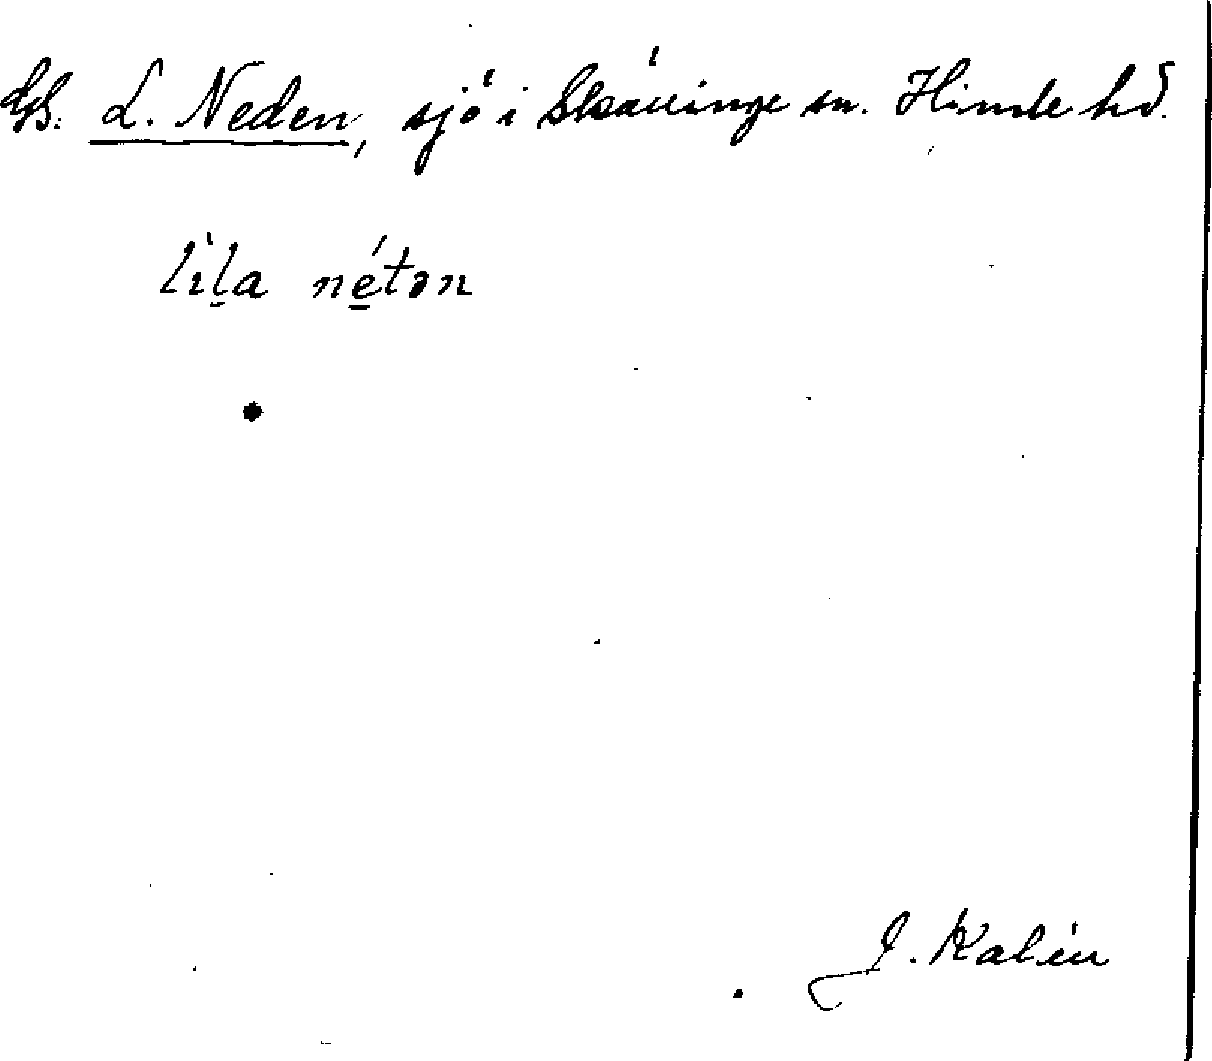 L. Neden, sjö i Skällinge sn. Himle hd.
lìḻa né̱tən
J. Kalén